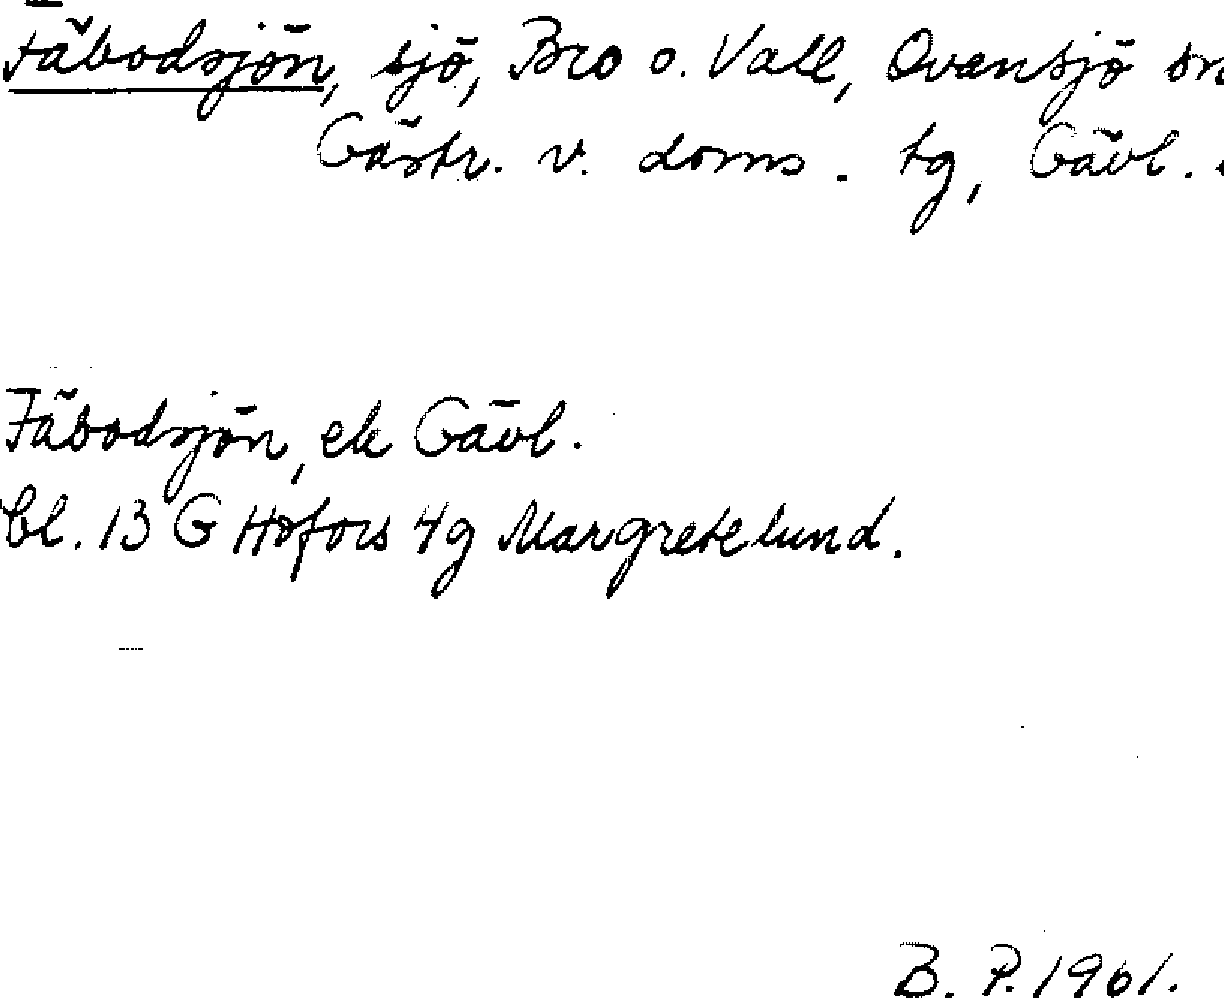 Fäbodsjön, sjö, Bro o. Vall, Ovansjö sn
Gästr. v. doms. tg, Gävl.
Fäbodsjön, ek Gävl.
bl. 13 G Hofors 4g Margretelund.
B. P. 1961.